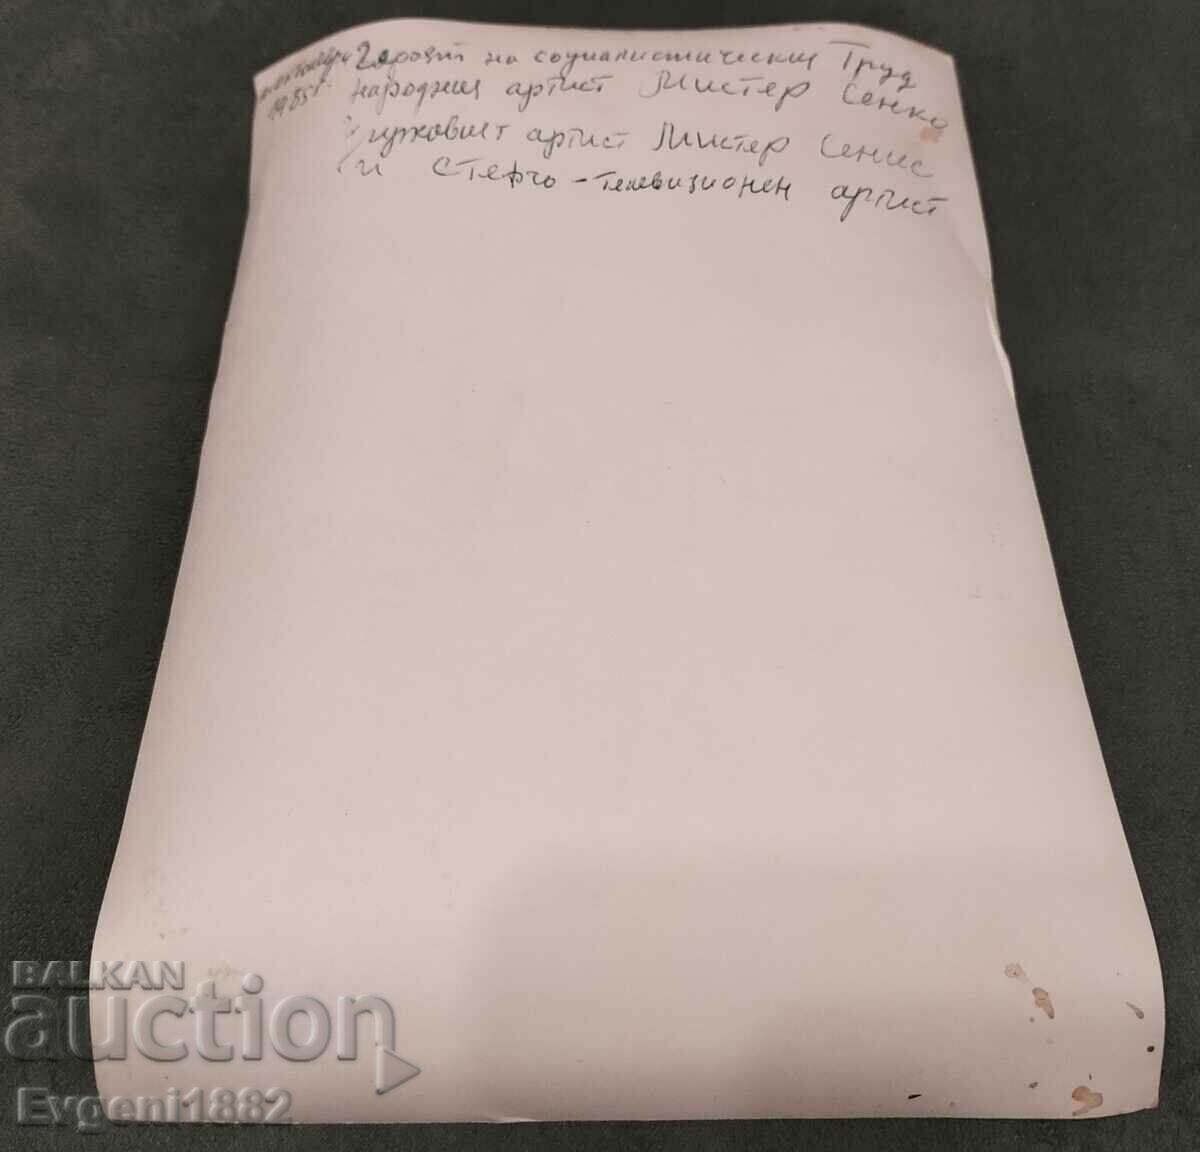 октомври
1985г.
Героят на социалистическия Труд
народния артист Мистер Сенко
Цирковият артист Мистер Сенис
и Стефчо - телевизионен артист
BALKAN
auction
Evgeni1882